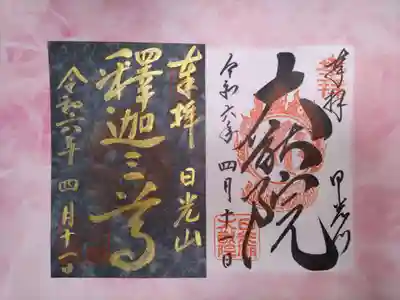 奉拝 日光山
大猷院
令和六年 四月十一日
奉拝 日光山
釋迦三尊
令和六年 四月十一日